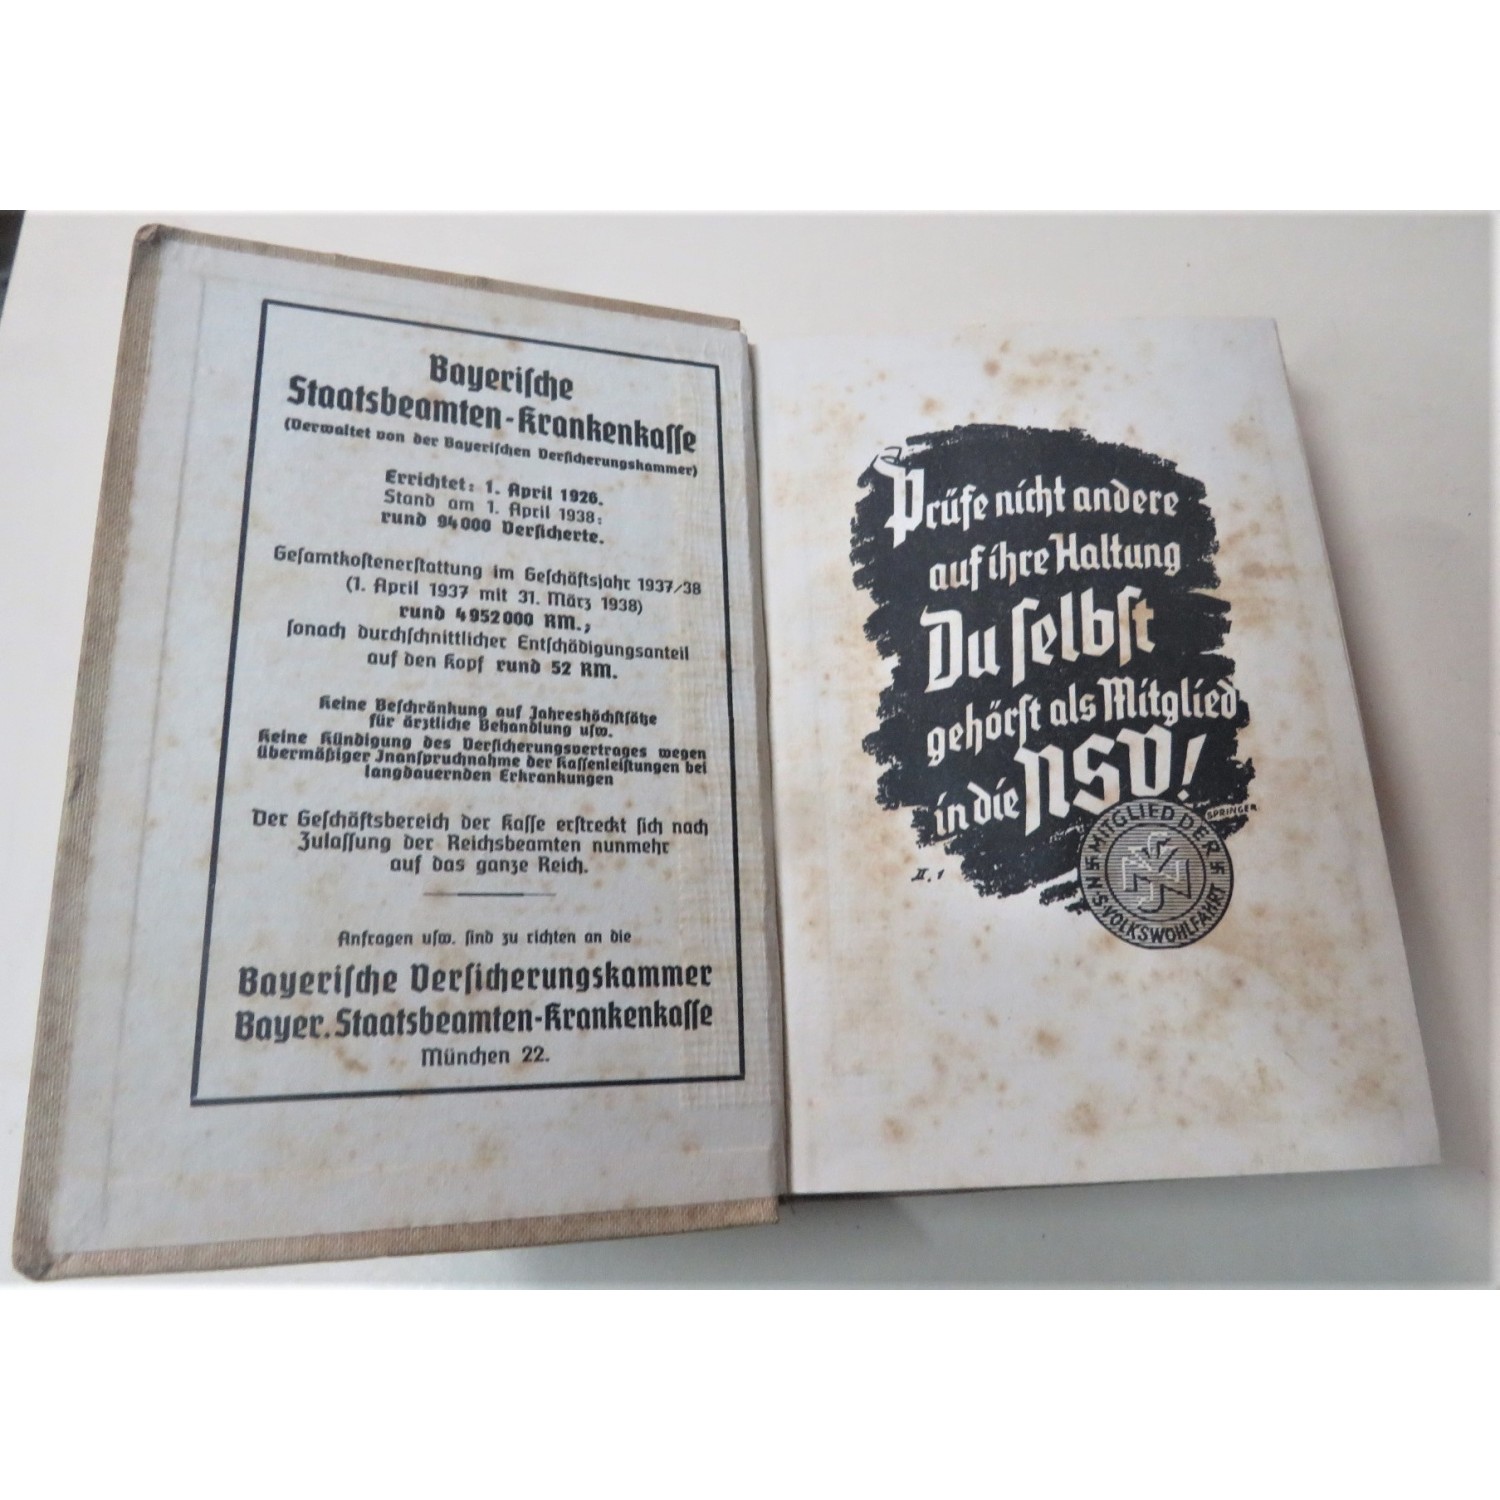 Bayerische
Staatsbeamten-Krankenkasse
(Verwaltet von der Bayerischen Versicherungskammer)
Errichtet: 1. April 1926.
Stand am 1. April 1938:
rund 94000 Versicherte.
Gesamtkostenerstattung im Geschäftsjahr 1937/38
(1. April 1937 mit 31. März 1938)
rund 4952000 RM.,
sonach durchschnittlicher Entschädigungsanteil
auf den Kopf rund 52 RM.
Keine Beschränkung auf Jahreshöchstsätze
für ärztliche Behandlung usw.
Keine Kündigung des Versicherungsvertrages wegen
übermäßiger Inanspruchnahme der Kassenleistungen bei
langdauernden Erkrankungen
Der Geschäftsbereich der Kasse erstreckt sich nach
Zulassung der Reichsbeamten nunmehr
auf das ganze Reich.
Anfragen usw. sind zu richten an die
Bayerische Versicherungskammer
Bayer. Staatsbeamten-Krankenkasse
München 22.
Prüfe nicht andere
auf ihre Haltung
Du selbst
gehörst als Mitglied
in die NSV!
SPRINGER
II. 1
MITGLIED DER
N.S.VOLKSWOHLFAHRT